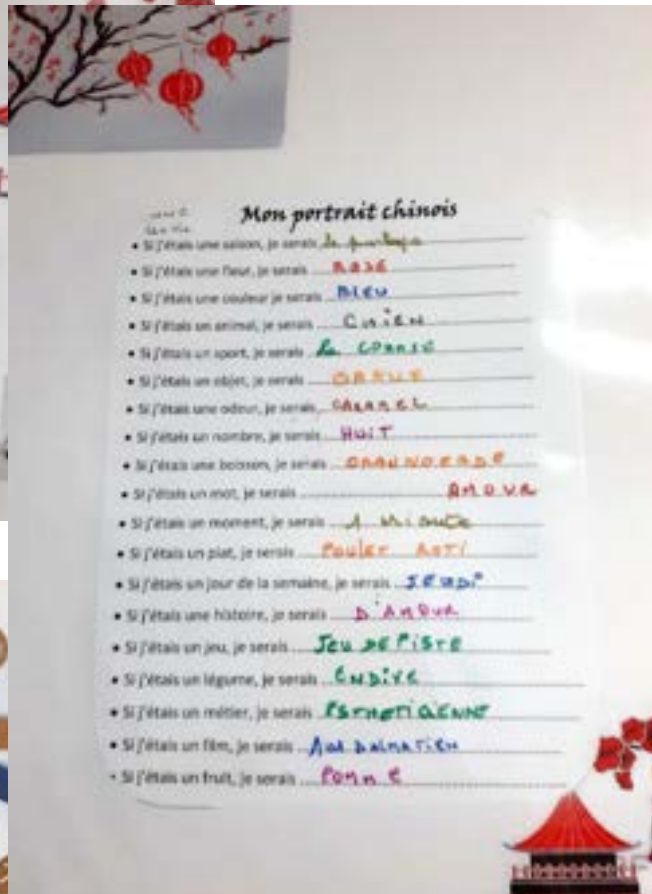 Mon portrait chinois
• Si j'étais une saison, je serais le
• Si j'étais une fleur, je serais ROSE
• Si j'étais une couleur je serais BLEU
• Si j'étais un animal, je serais CHIEN
• Si j'étais un sport, je serais la COURSE
• Si j'étais un objet, je serais
• Si j'étais une odeur, je serais CARAMEL
• Si j'étais un nombre, je serais HUIT
• Si j'étais une boisson, je serais
• Si j'étais un mot, je serais AMOUR
• Si j'étais un moment, je serais 1 MINUTE
• Si j'étais un plat, je serais POULET ROTI
• Si j'étais un jour de la semaine, je serais JEUDI
• Si j'étais une histoire, je serais D'AMOUR
• Si j'étais un jeu, je serais JEU DE PISTE
• Si j'étais un légume, je serais ENDIVE
• Si j'étais un métier, je serais
• Si j'étais un film, je serais DALMATIEN
• Si j'étais un fruit, je serais POMME